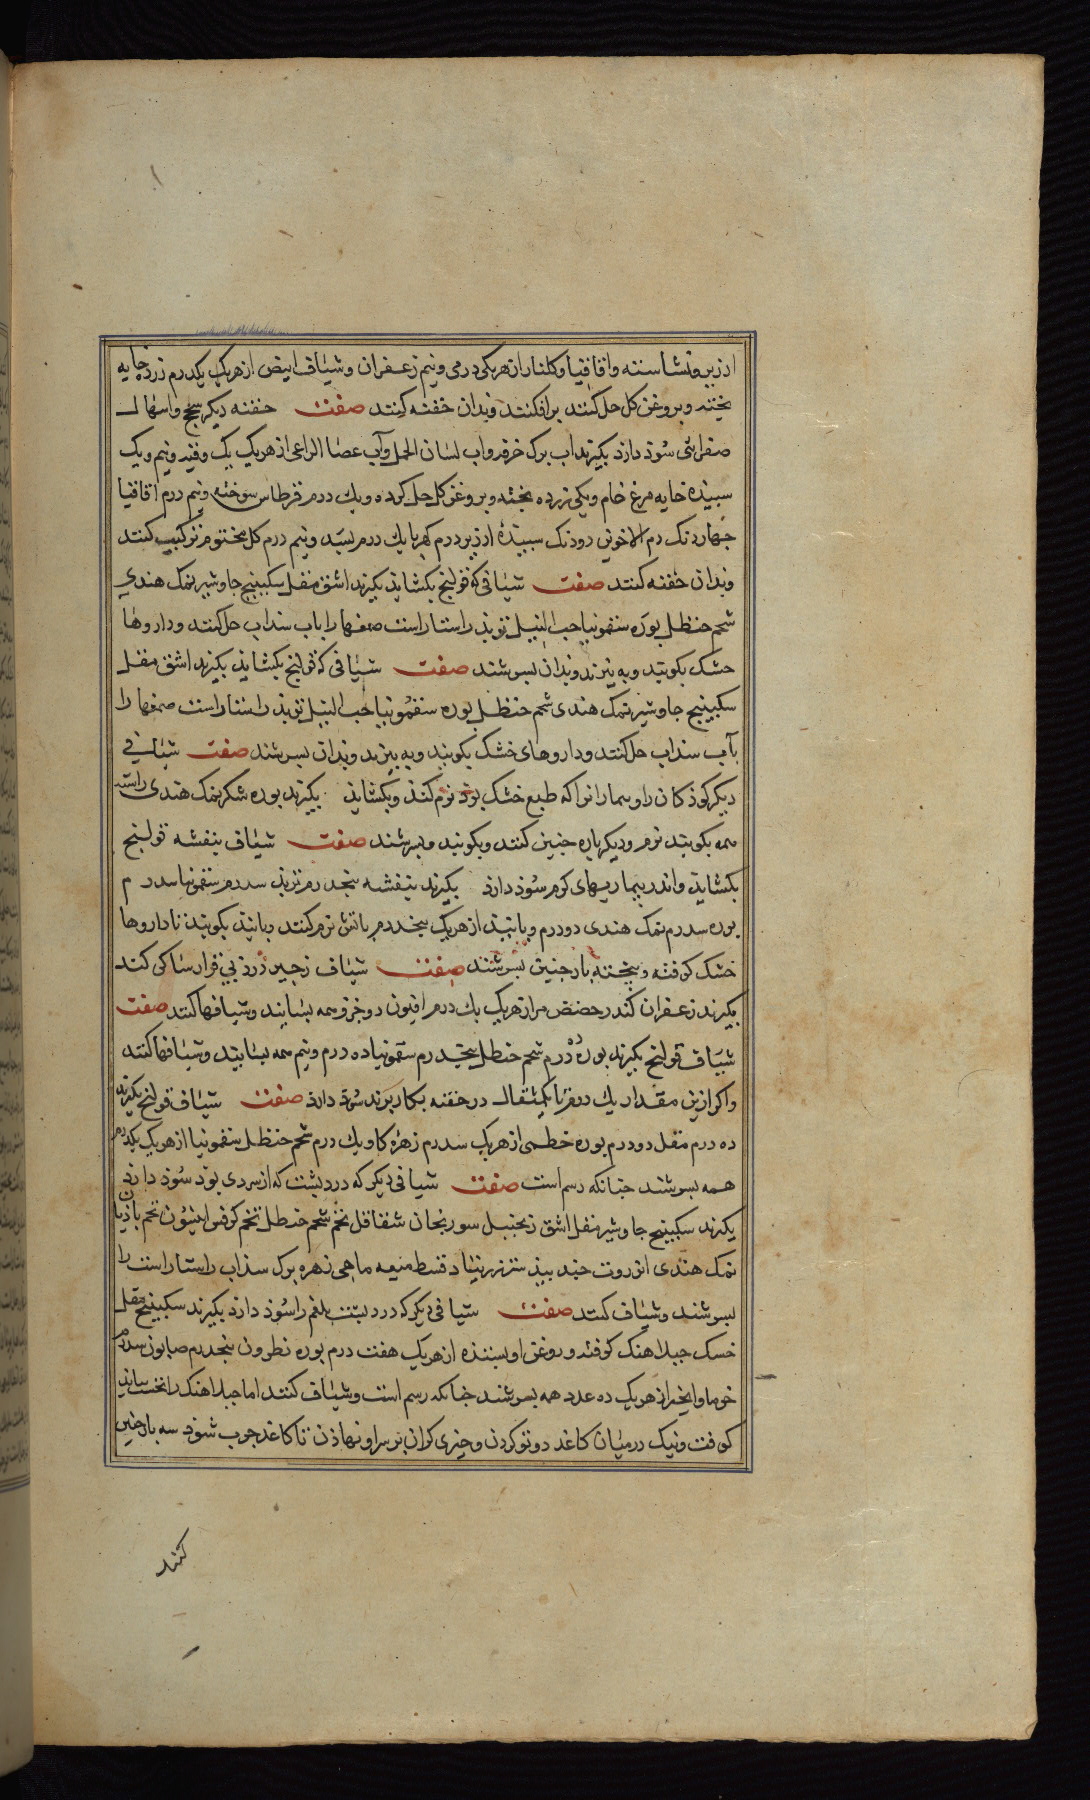 ارزیر و نشاسته و اقاقیا و کلنار از هریکی درمی و نیم زعفران و شیاف ابیض از هریک یکدرم زرده خایه
پخته و بروغن کل حل کنند برافکنند و بدان حقنه کنند صفت حقنه دیکر سحج و اسهال
صفرائی سوذ دارذ بکیرند اب برک خرفه و اب لسان الحمل و آب عصا الراعی از هریک یک وقیه و نیم و یک
سبیذه خایه مرغ خام و یکی زرده پخته و بروغن کل حل کرده و یک درم قرطاس سوخته و نیم درم اقاقیا
جهار دنک دم الاخوین دو دنک سبیذهٔ ارزیز درم کهربا یک درم بسد و نیم درم کل مختوم ترکیب کنند
و بدان حقنه کنند صفت شیافی که قولنج بکشاید بکیرند اشق مقل سکبینج جاوشیر نمک هندی
شحم حنظل بوره سقمونیا حب النیل تربذ راستاراست صمغها را باب سداب حل کنند و داروها
خشک بکوبند و به بیزند و بدان بسرشند صفت شیافی که قولنج بکشاید بکیرند اشق مقل
سکبینج جاوشیر نمک هندی شحم حنظل بوره سقمونیا حب النیل تربذ راستاراست صمغها را
بآب سداب حل کنند و داروهای خشک بکوبند و به بیزند و بدان بسرشند صفت شیافی
دیکر کوذکان را و بیمارانرا که طبع خشک بوذ نرم کند و بکشاید بکیرند بوره شکر نمک هندی راست
همه بکوبند نرم و دیکرباره جنین کنند و بکوبند و بسرشند صفت شیاف بنفشه قولنج
بکشاید و اندر بیماریهای کرم سوذ دارذ بکیرند بنفشه پنجدرم تربذ سدرم سقمونیا سدرم
بوره سدرم نمک هندی دو درم و پانیذ از هریک پنجدرم باتش نرم کنند و پانیذ بکوبند تا داروها
خشک کوفته و بیخته بار جنین بسرشند صفت شیاف زحیر درد بی قرار ساکن کند
بکیرند زعفران کندر حضض مر از هریک یک درم افیون دو جزو همه بسایند و شیافها کنند صفت
شیاف قولنج بکیرند بوره دٰرم شحم حنظل پنجدرم سقمونیا ده درم و نیم همه بسایند و شیافها کنند
و اکر ازین مقدار یک درم تا یکمثقال در حقنه بکار برند سوذ دارذ صفت شیاف قولنج بکیرند
ده درم مقل دو درم بوره خطمی از هریک سدرم زهره کاو یک درم شحم حنظل سقمونیا از هریک یکدرم
همه بسرشند جنانکه رسم است صفت شیافی دیکر که درد بشت که از سردی بوذ سوذ دارذ
بکیرند سکبینج جاوشیر مقل اشق زنجبیل سورنجان شقاقل تخم شحم حنظل تخم کرفس انیسون تخم باذیان
نمک هندی انزروت جند بیذستر زرنباد قسط میعه ماهی زهره برک سذاب راستاراست را
بسرشند و شیاف کنند صفت شیافی دیکر که درد بشت بلغم را سوذ دارذ بکیرند سکبینج مقل
خسک جبلاهنک کوفته و روغن او بستذه از هریک هفت درم بوره نطرون پنجدرم صابون سدرم
خرما و انجیر از هریک ده عدد همه بسرشند جنانکه رسم است و شیاف کنند اما جبلاهنک را نخست بباید
کوفت و نیک درمیان کاغد دوتو کردن و جیزی کران بر سر او نهاذن تا کاغد جرب شوذ سه بار جنین
کنند